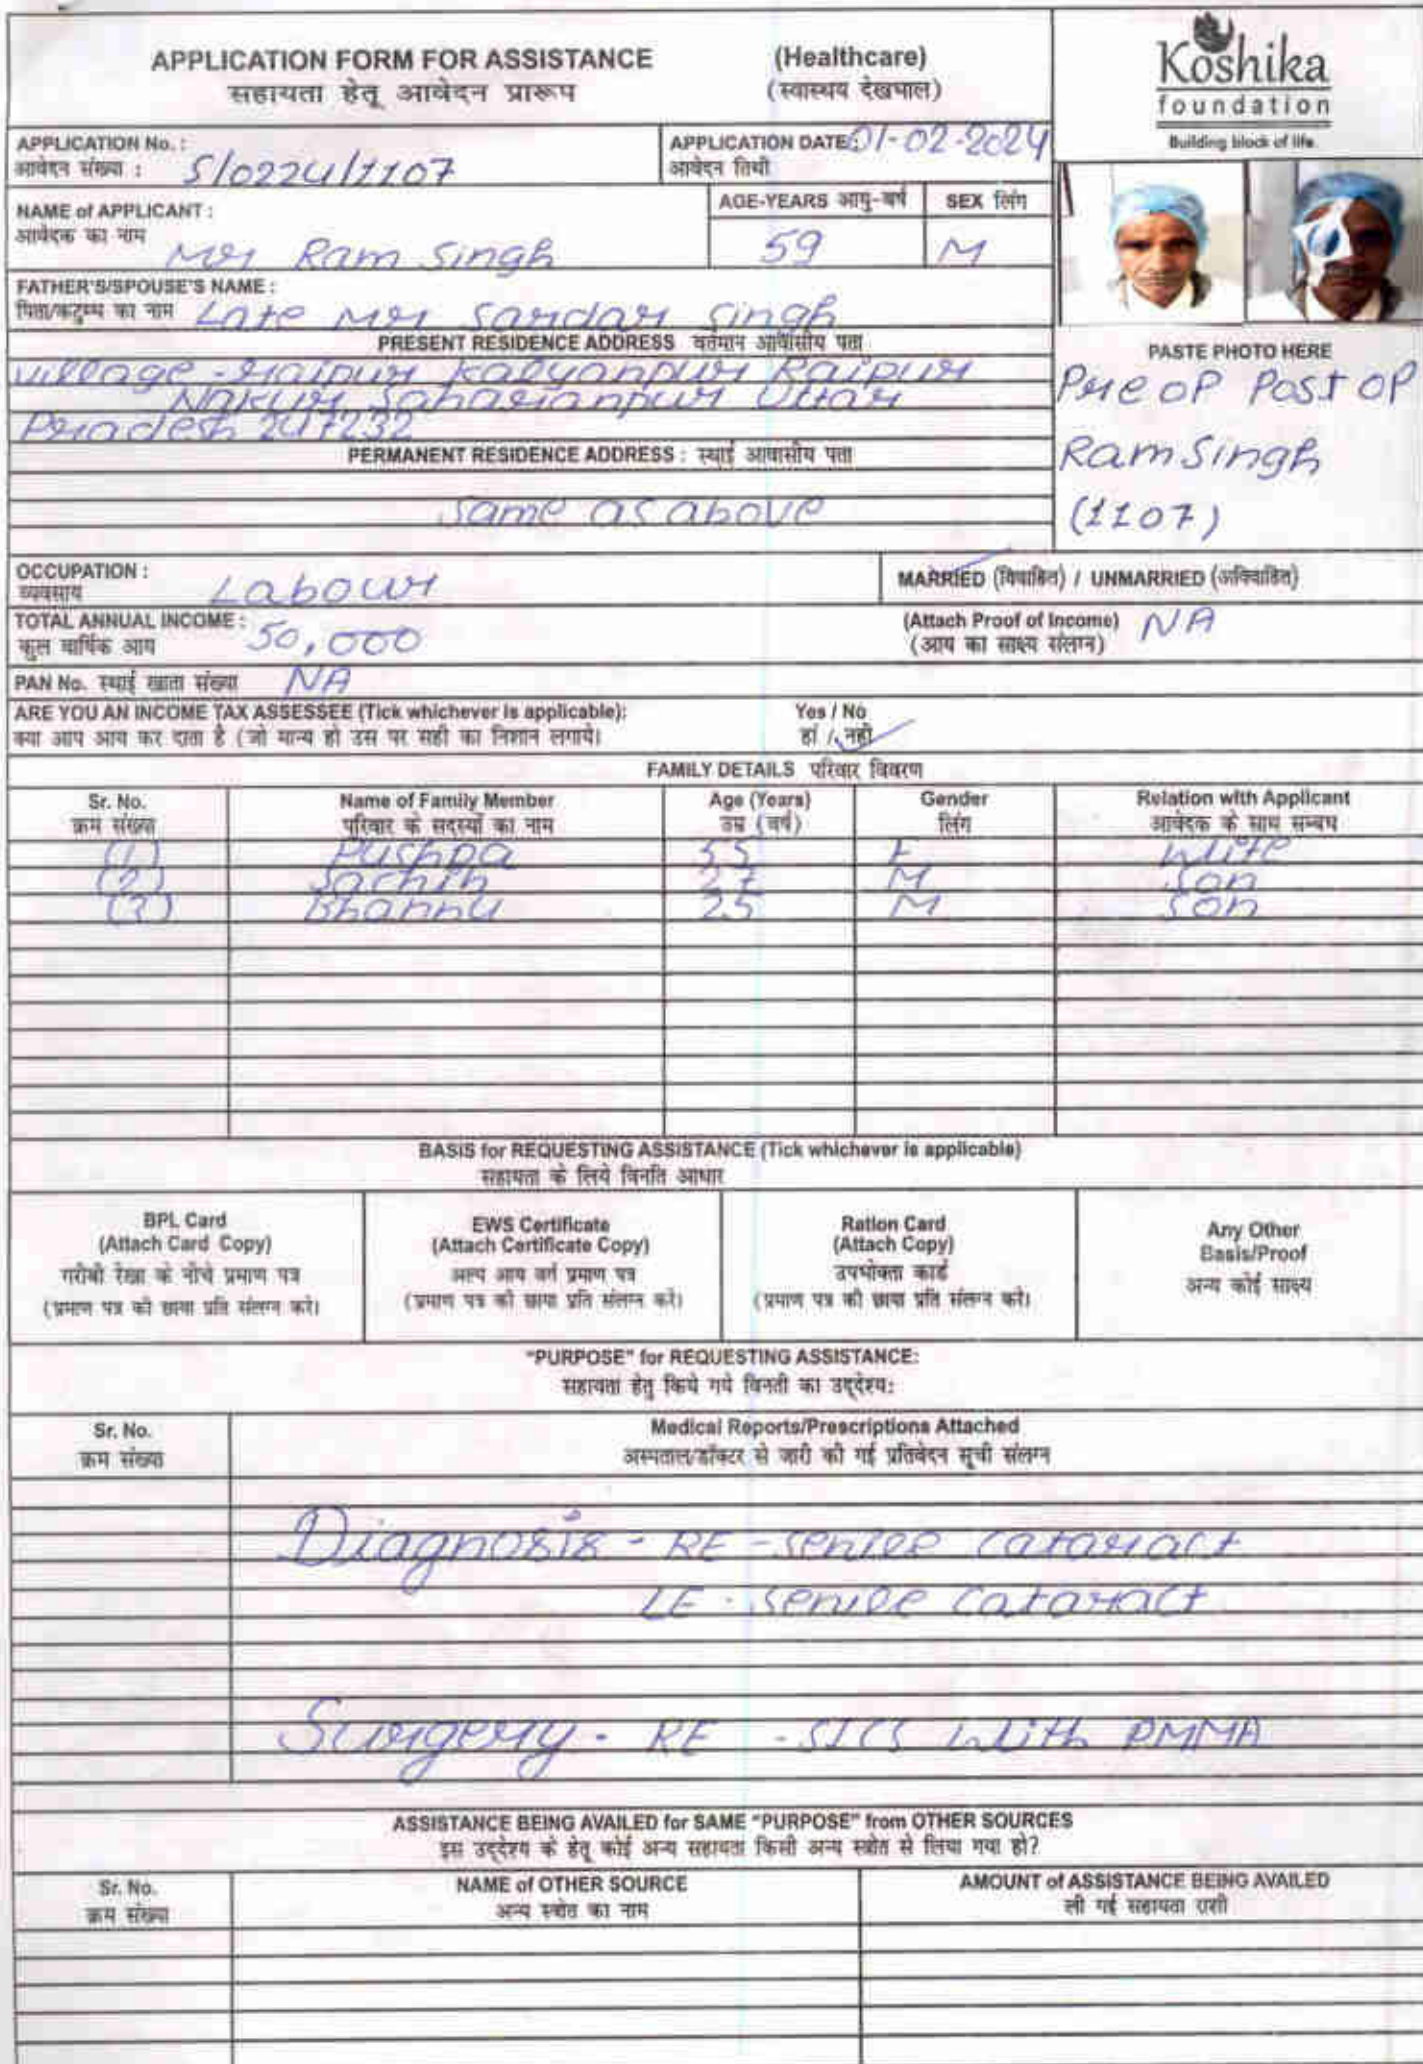 APPLICATION FORM FOR ASSISTANCE (Healthcare)
सहायता हेतू आवेदन प्रारूप (स्वास्थय देखभाल)
Koshika
foundation
Building block of life.
APPLICATION No. :
आवेदन संख्या : S/0224/1107
APPLICATION DATE: 01-02-2024
आवेदन तिथी
NAME of APPLICANT :
आवेदक का नाम Mr Ram Singh
AGE-YEARS आयु-वर्ष
59
SEX लिंग
M
FATHER'S/SPOUSE'S NAME :
पिता/कटुम्ब का नाम Late Mr Sardar Singh
PRESENT RESIDENCE ADDRESS वर्तमान आवासीय पता
Village - Raipur Kalyanpur Raipur
Nakur Saharanpur Uttar
Pradesh 247232
PERMANENT RESIDENCE ADDRESS : स्थाई आवासीय पता
Same as above
PASTE PHOTO HERE
Pre OP Post OP
Ram Singh
(1107)
OCCUPATION :
व्यवसाय Labour
MARRIED (विवाहित) / UNMARRIED (अविवाहित)
TOTAL ANNUAL INCOME :
कुल वार्षिक आय 50,000
(Attach Proof of Income) NA
(आय का साक्ष्य संलग्न)
PAN No. स्थाई खाता संख्या NA
ARE YOU AN INCOME TAX ASSESSEE (Tick whichever is applicable): Yes / No
क्या आप आय कर दाता है (जो मान्य हो उस पर सही का निशान लगाये। हां / नही
FAMILY DETAILS परिवार विवरण
Sr. No. Name of Family Member Age (Years) Gender Relation with Applicant
क्रम संख्या परिवार के सदस्यों का नाम उम्र (वर्ष) लिंग आवेदक के साथ सम्बध
(1) Pushpa 55 F Wife
(2) Sachin 27 M Son
(3) Bhannu 25 M Son
BASIS for REQUESTING ASSISTANCE (Tick whichever is applicable)
सहायता के लिये विनति आधार
BPL Card
(Attach Card Copy)
गरीबी रेखा के नीचे प्रमाण पत्र
(प्रमाण पत्र की छाया प्रति संलग्न करे।
EWS Certificate
(Attach Certificate Copy)
अल्प आय वर्ग प्रमाण पत्र
(प्रमाण पत्र की छाया प्रति संलग्न करे।
Ration Card
(Attach Copy)
उपभोक्ता कार्ड
(प्रमाण पत्र की छाया प्रति संलग्न करे।
Any Other
Basis/Proof
अन्य कोई साक्ष्य
"PURPOSE" for REQUESTING ASSISTANCE:
सहायता हेतु किये गये विनती का उद्देश्य:
Sr. No. Medical Reports/Prescriptions Attached
क्रम संख्या अस्पताल/डॉक्टर से जारी की गई प्रतिवेदन सूची संलग्न
Diagnosis - RE - Senile Cataract
LE - Senile Cataract
Surgery - RE - SICS with PMMA
ASSISTANCE BEING AVAILED for SAME "PURPOSE" from OTHER SOURCES
इस उद्देश्य के हेतू कोई अन्य सहायता किसी अन्य स्त्रोत से लिया गया हो?
Sr. No. NAME of OTHER SOURCE AMOUNT of ASSISTANCE BEING AVAILED
क्रम संख्या अन्य स्त्रोत का नाम ली गई सहायता राशी